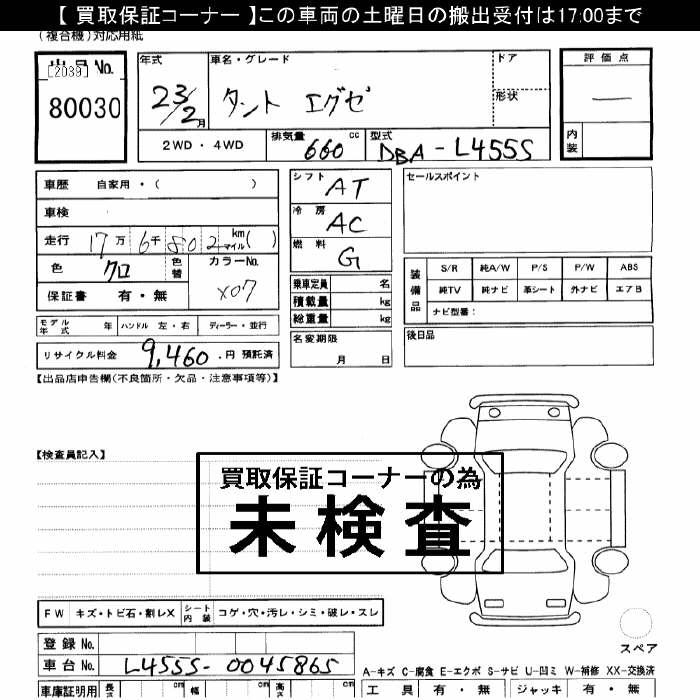 【 買取保証コーナー 】この車両の土曜日の搬出受付は17:00まで
(複合機)対応用紙
[2039] No.
80030
年式
23/2月
車名・グレード
タント エグゼ
ドア
形状
評価点
—
内装
2WD ・ 4WD
排気量 660 cc
型式 DBA-L455S
車歴 自家用・( )
車検
走行 17万6千802 km マイル( )
色 クロ 色替
カラーNo. X07
保証書 有・無
シフト AT
冷房 AC
燃料 G
乗車定員 名
積載量 kg
総重量 kg
セールスポイント
装備品
S/R 純A/W P/S P/W ABS
純TV 純ナビ 革シート 外ナビ エアB
ナビ型番:
モデル年式 年 ハンドル 左・右 ディーラー・並行
リサイクル料金 9,460.円 預託済
名変期限
月 日
後日品
【出品店申告欄(不良箇所・欠品・注意事項等)】
【検査員記入】
買取保証コーナーの為
未検査
FW キズ・トビ石・割レX シート内装 コゲ・穴・汚レ・シミ・破レ・スレ
スペア
登録 No.
車台 No. L455S-0045865
A-キズ C-腐食 E-エクボ S-サビ U-凹ミ W-補修 XX-交換済
車庫証明用 長さ cm 幅 cm 高さ cm
工具 有・無 ジャッキ 有・無